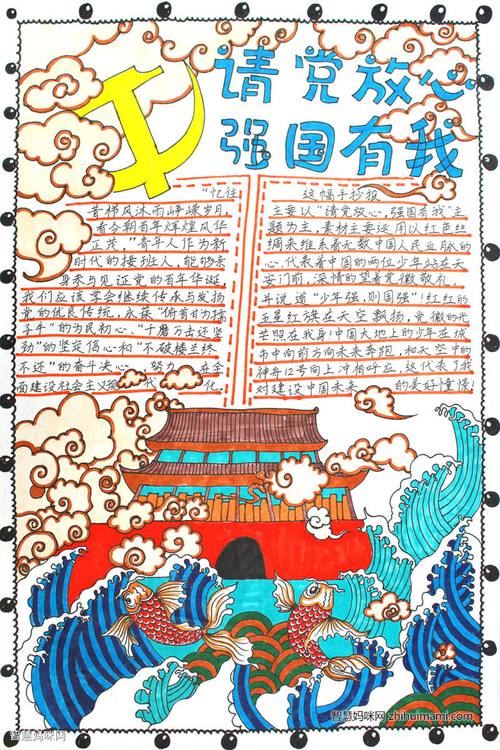 请党放心
强国有我
"忆往
昔栉风沐雨峥嵘岁月,
看今朝百年辉煌风华
正茂,"青年人作为新
时代的接班人,能够亲
身参与见证党的百年华诞
我们应该学会继续传承与发扬
党的优良传统,永葆"俯首甘为孺
子牛"的为民初心,"千磨万击还坚
劲"的坚定信心和"不破楼兰终
不还"的奋斗决心,努力 在全
面建设社会主义现 代 化。
这幅手抄报
主要以"请党放心,强国有我"主
题为主,素材主要运用以红色丝
绸来维系着无数中国人民血脉的
心,代表着中国的两位少年站在天
安门前,深情的望着党徽敬礼,
并说道"少年强,则国强"!红红的
五星红旗在天空飘扬,党徽的光
芒照在我身!中国大地上的少年在城
市中向前方向未来奔跑,和天空中的
神舟12号向上冲相呼应,这代表了我
对建设中国未来 的美好憧憬!
智慧妈咪网
智慧妈咪网 zhihuimami.com